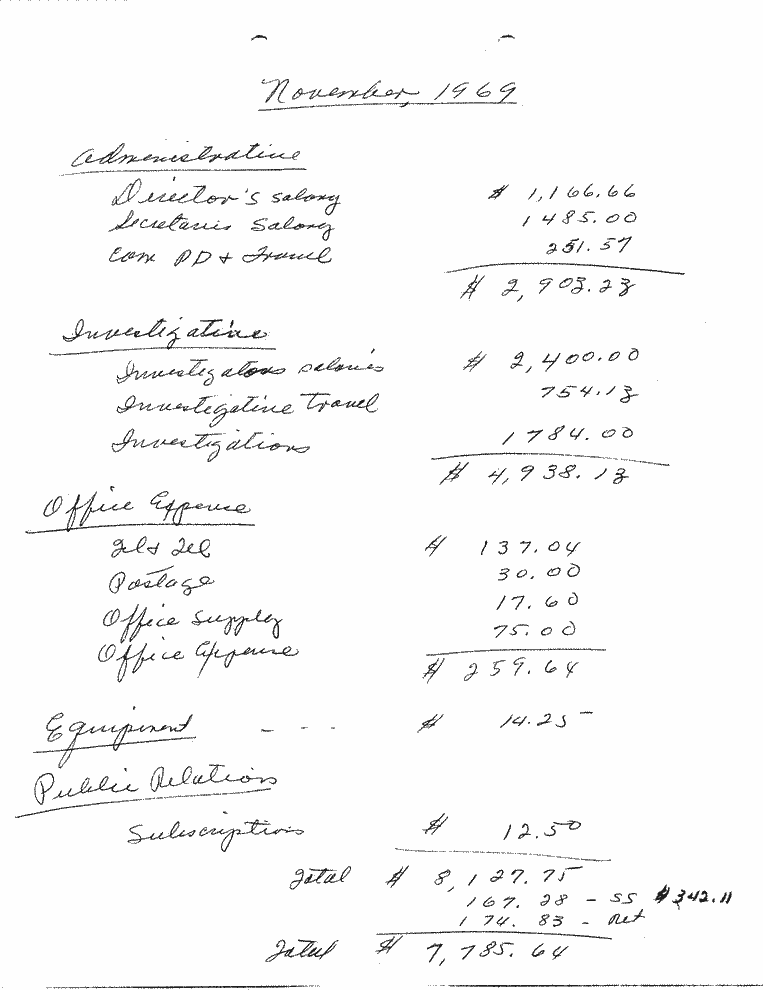 November, 1969
Administrative
Director's Salary $ 1,166.66
Secretaries Salary 1485.00
Com PD + Travel 251.57
$ 2,903.23
Investigative
Investigators salaries $ 2,400.00
Investigative Travel 754.13
Investigations 1784.00
$ 4,938.13
Office Expense
Tel + Tel $ 137.04
Postage 30.00
Office Supply 17.60
Office Expense 75.00
$ 259.64
Equipment - - - $ 14.25
Public Relations
Subscriptions $ 12.50
Total $ 8,127.75
167.28 - SS $342.11
174.83 - Ret
Total $ 7,785.64